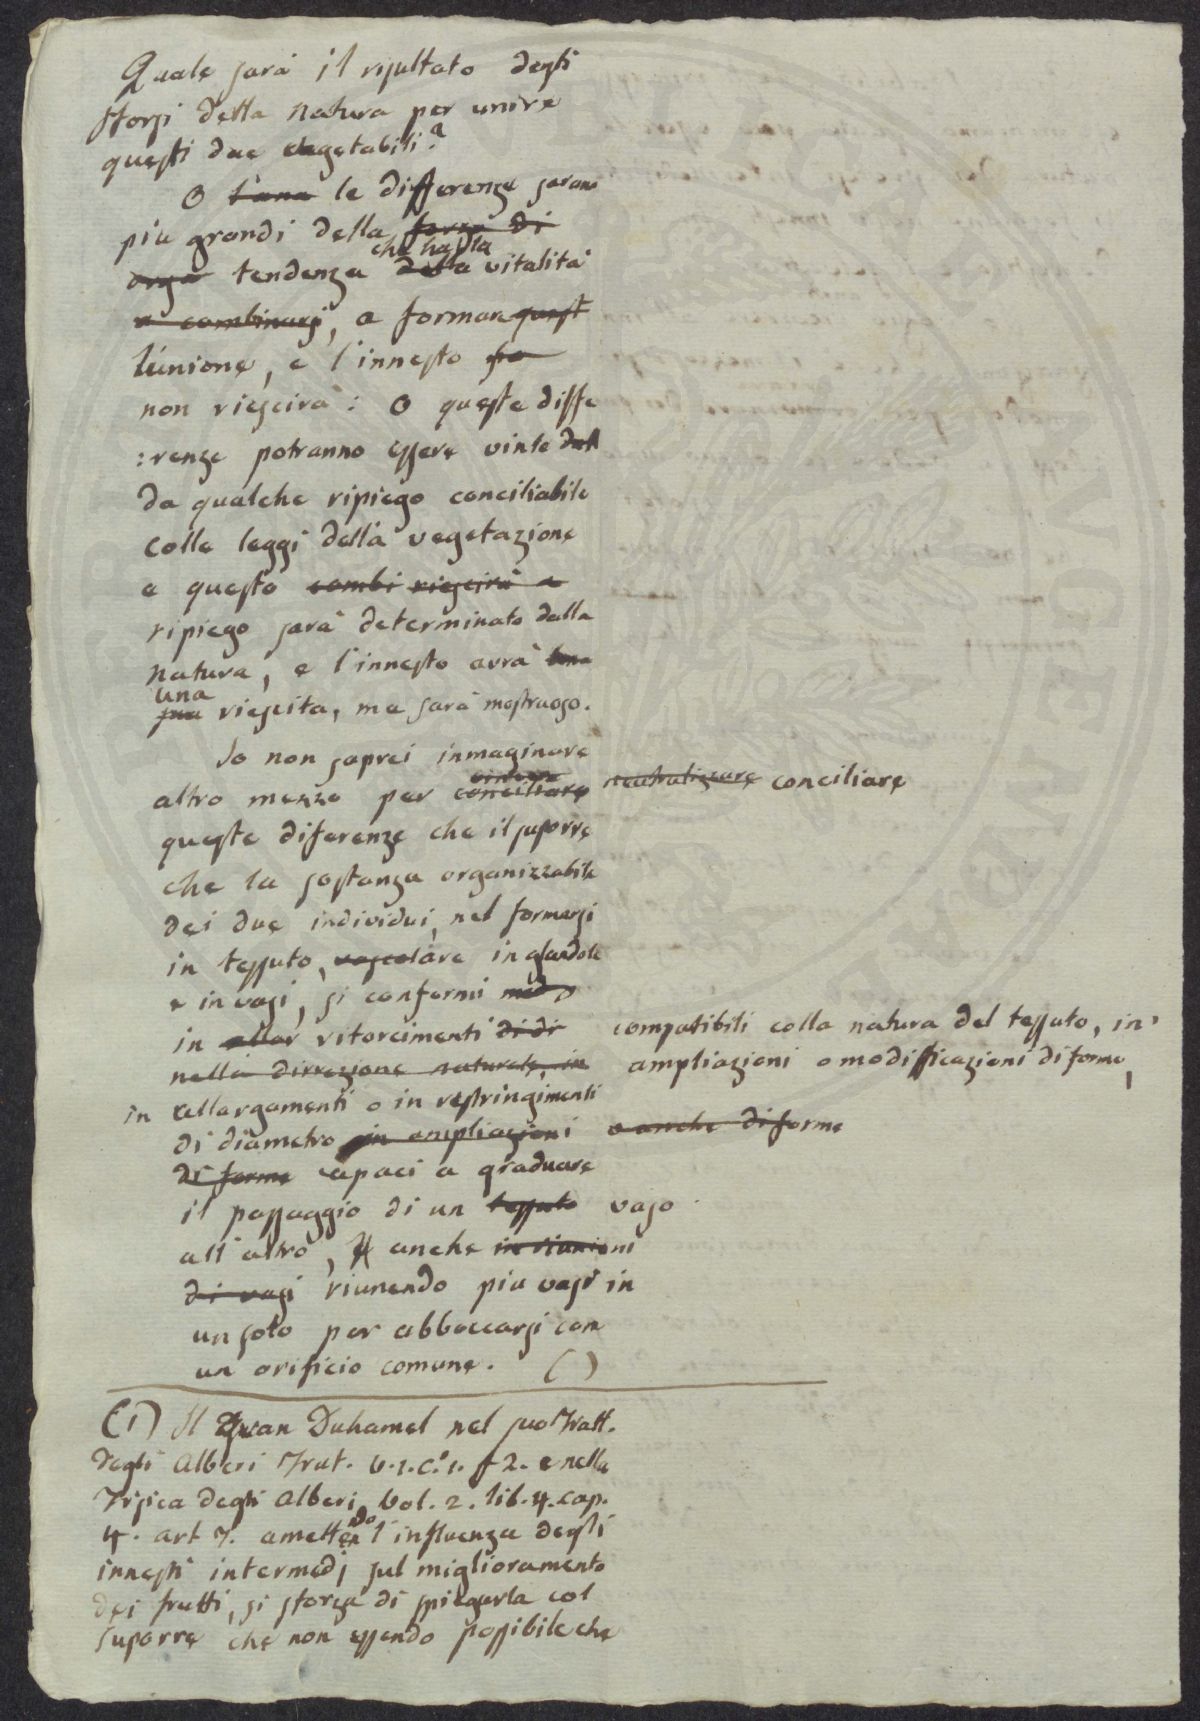 Quale sarà il risultato degli
sforzi della natura per unire
questi due vegetabili?
O l'una le differenze sarano
più grandi della forza di
che ha la
orga tendenza della vitalità
a combinarsi, a formare quest
l'unione, e l'innesto
non riescirà: O queste diffe
:renze potranno essere vinte dal
da qualche ripiego conciliabile
colle leggi della vegetazione
e questo combi riescirà a
ripiego sarà determinato dalla
natura, e l'innesto avrà
una
sua riescita, ma sarà mostruoso.
Io non saprei inmaginare
vincere
altro mezzo per conciliare neutralizzare conciliare
queste diferenze che il suporre
che la sostanza organizzabile
dei due individui, nel formarsi
in tessuto, vascolare in glandole
e in vasi, si conformi
in ritorcimenti di di compatibili colla natura del tessuto, in
nella dirrezione naturale, in ampliazioni o modifficazioni di forme,
in rallargamenti o in restringimenti
di diametro in ampliazioni o anche di forme
di forme capaci a graduare
il passaggio di un tessuto vaso
all'altro, anche in riunioni
di vasi riunendo più vasi in
un solo per abboccarsi con
un orificio comune. ( )
(1) Il gran Duhamel nel suo Tratt.
degli Alberi Frut. V.1.c.º1. f 2. e nella
Frisica degli Alberi Vol. 2. lib. 4. cap.
do
4. art 7. ametten l'influenza degli
innesti intermedj sul miglioramento
dei frutti, si sforza di spiegarla col
suporre che non essendo possibile che